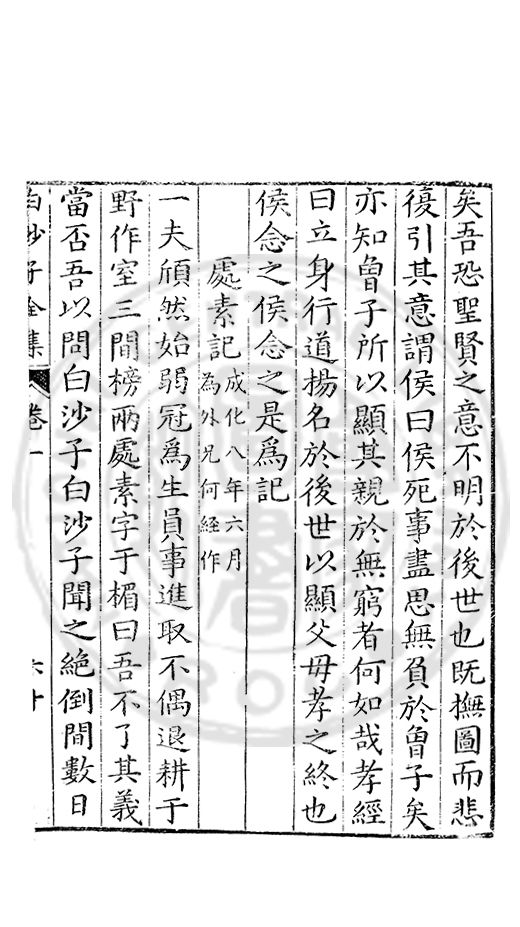 矣吾恐聖賢之意不明於後世也既撫圖而悲
復引其意謂侯曰侯死事盡思無負於魯子矣
亦知魯子所以顯其親於無窮者何如哉孝經
曰立身行道揚名於後世以顯父母孝之終也
侯念之侯念之是爲記
處素記
成化八年六月
為外兄何經作
一夫頎然始弱冠爲生員事進取不偶退耕于
野作室三間榜兩處素字于楣曰吾不了其義
當否吾以問白沙子白沙子聞之絶倒間數日
白沙子全集
卷一
六十